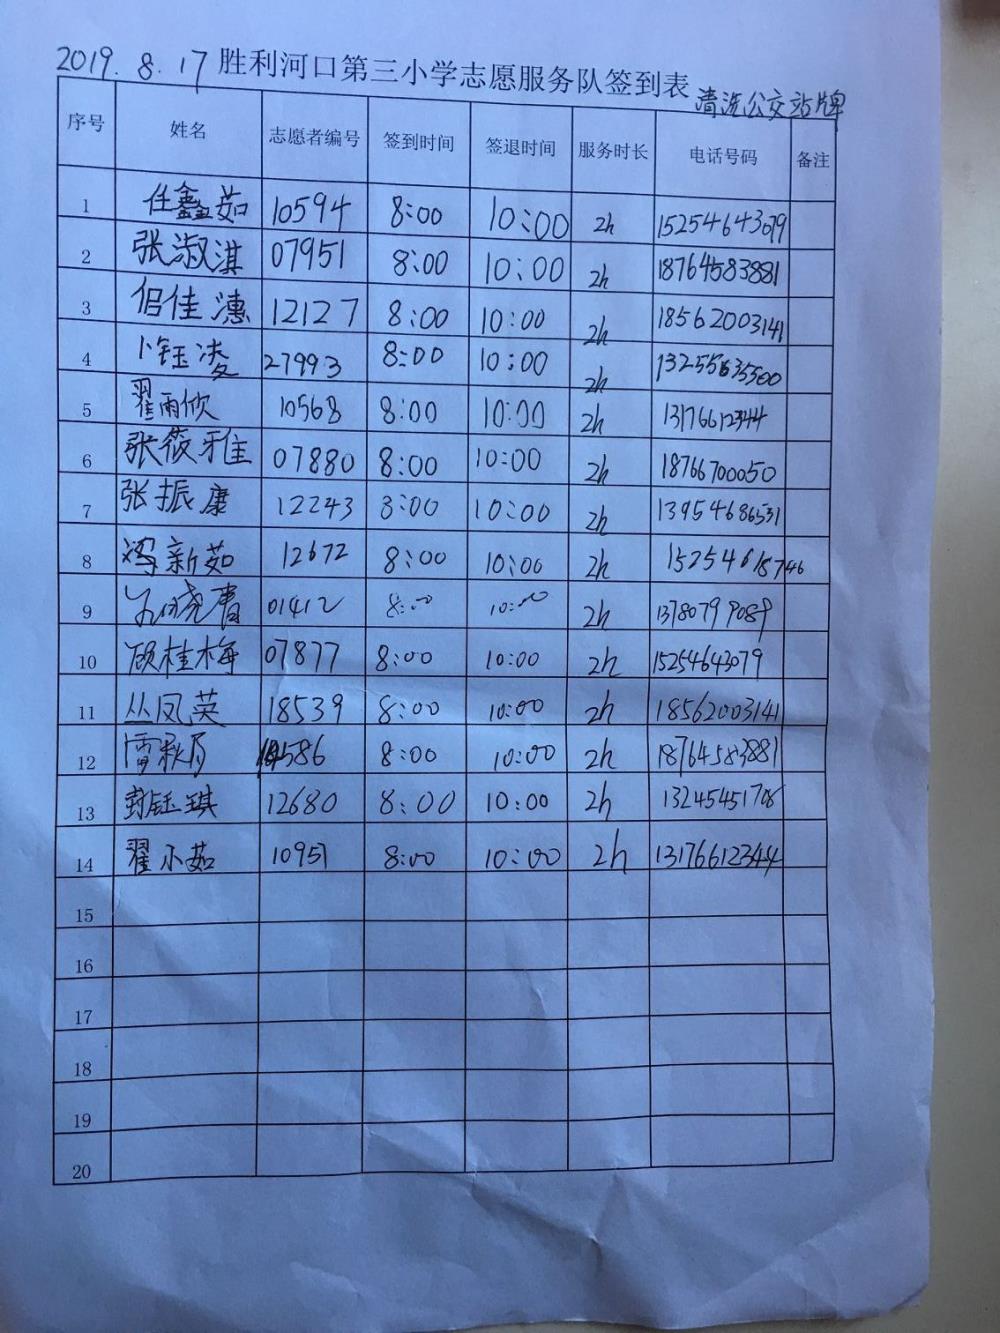 2019. 8. 17 胜利河口第三小学志愿服务队签到表 清洗公交站牌
序号 姓名 志愿者编号 签到时间 签退时间 服务时长 电话号码 备注
1 任鑫茹 10594 8:00 10:00 2h 15254643079
2 张淑淇 07951 8:00 10:00 2h 18764583881
3 佀佳潓 12127 8:00 10:00 2h 18562003141
4 卜钰凌 27993 8:00 10:00 2h 13255635500
5 翟雨欣 10568 8:00 10:00 2h 13176612344
6 张筱雅 07880 8:00 10:00 2h 18766700050
7 张振康 12243 8:00 10:00 2h 13954686531
8 冯新茹 12672 8:00 10:00 2h 15254618746
9 01412 8:00 10:00 2h 13780799089
10 顾桂梅 07877 8:00 10:00 2h 15254643079
11 丛凤英 18539 8:00 10:00 2h 18562003141
12 雷秋月 8:00 10:00 2h 18764583881
13 封钰琪 12680 8:00 10:00 2h 13245451708
14 翟小茹 10951 8:00 10:00 2h 13176612344
15
16
17
18
19
20